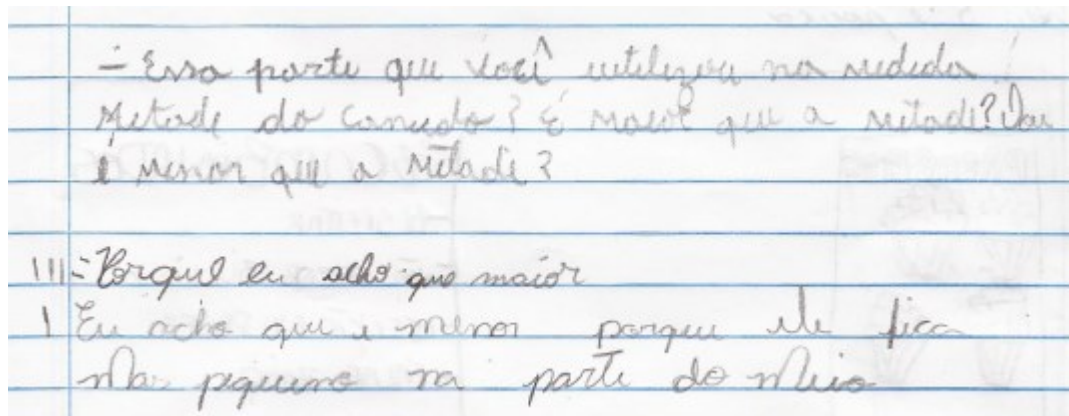 - Essa parte que você utilizou na medida
Metade do canudo? É maior que a metade? Ou
é menor que a metade?
III - Porque eu acho que maior
I Eu acho que e menor porque ele fica
mas pequeno na parte do meio